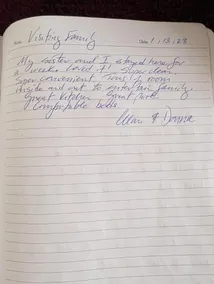 Visiting Family
My sister and I stayed here for
a week. Loved it! Super clean.
Super convenient. Tons of room
inside and out to entertain family.
Great kitchen. Great
Comfortable beds.
& Donna